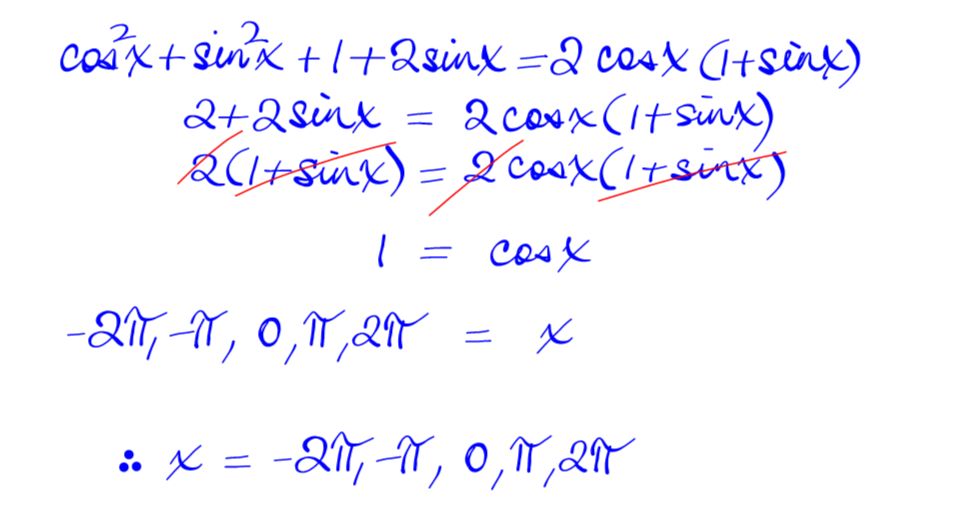 cos²x + sin²x + 1 + 2 sinx = 2 cosx (1 + sinx)
2 + 2 sinx = 2 cosx (1 + sinx)
2(1 + sinx) = 2 cosx (1 + sinx)
1 = cosx
-2π, -π, 0, π, 2π = x
∴ x = -2π, -π, 0, π, 2π